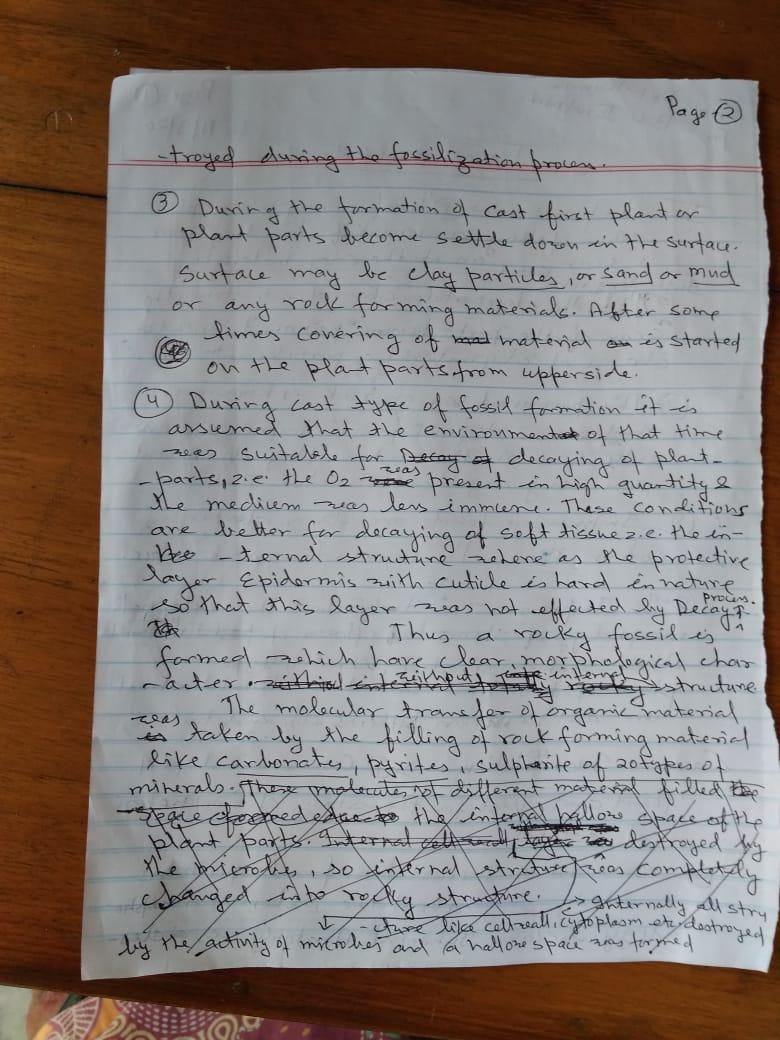 Page-②
-troyed during the fossilization process.
③ During the formation of cast first plant or
plant parts become settle down in the surface.
Surface may be clay particles, or sand or mud
or any rock forming materials. After some
times covering of mad material on is started
on the plant parts from upperside.
④ During cast type of fossil formation it is
assumed that the environment of that time
was suitable for Decay of decaying of plant-
-parts, i.e. the O2 was present in high quantity &
the medium was less immune. These conditions
are better for decaying of soft tissue i.e. the in-
-ternal structure where as the protective
layer Epidermis with cuticle is hard in nature
so that this layer was not effected by Decay process.
Thus a rocky fossil is
formed which have clear morphological char
-acter. without internal structure
The molecular transfer of organic material
was taken by the filling of rock forming material
like carbonates, pyrites, sulphite of 20 types of
minerals. These molecules of different material filled the
space formed due to the internal hallow space of the
plant parts. Internal cell wall destroyed by
the microbes, so internal structure was completely
changed into rocky structure.
→ Internally all stru
-cture like cell wall, cytoplasm etc destroyed
by the activity of microbes and a hallow space was formed